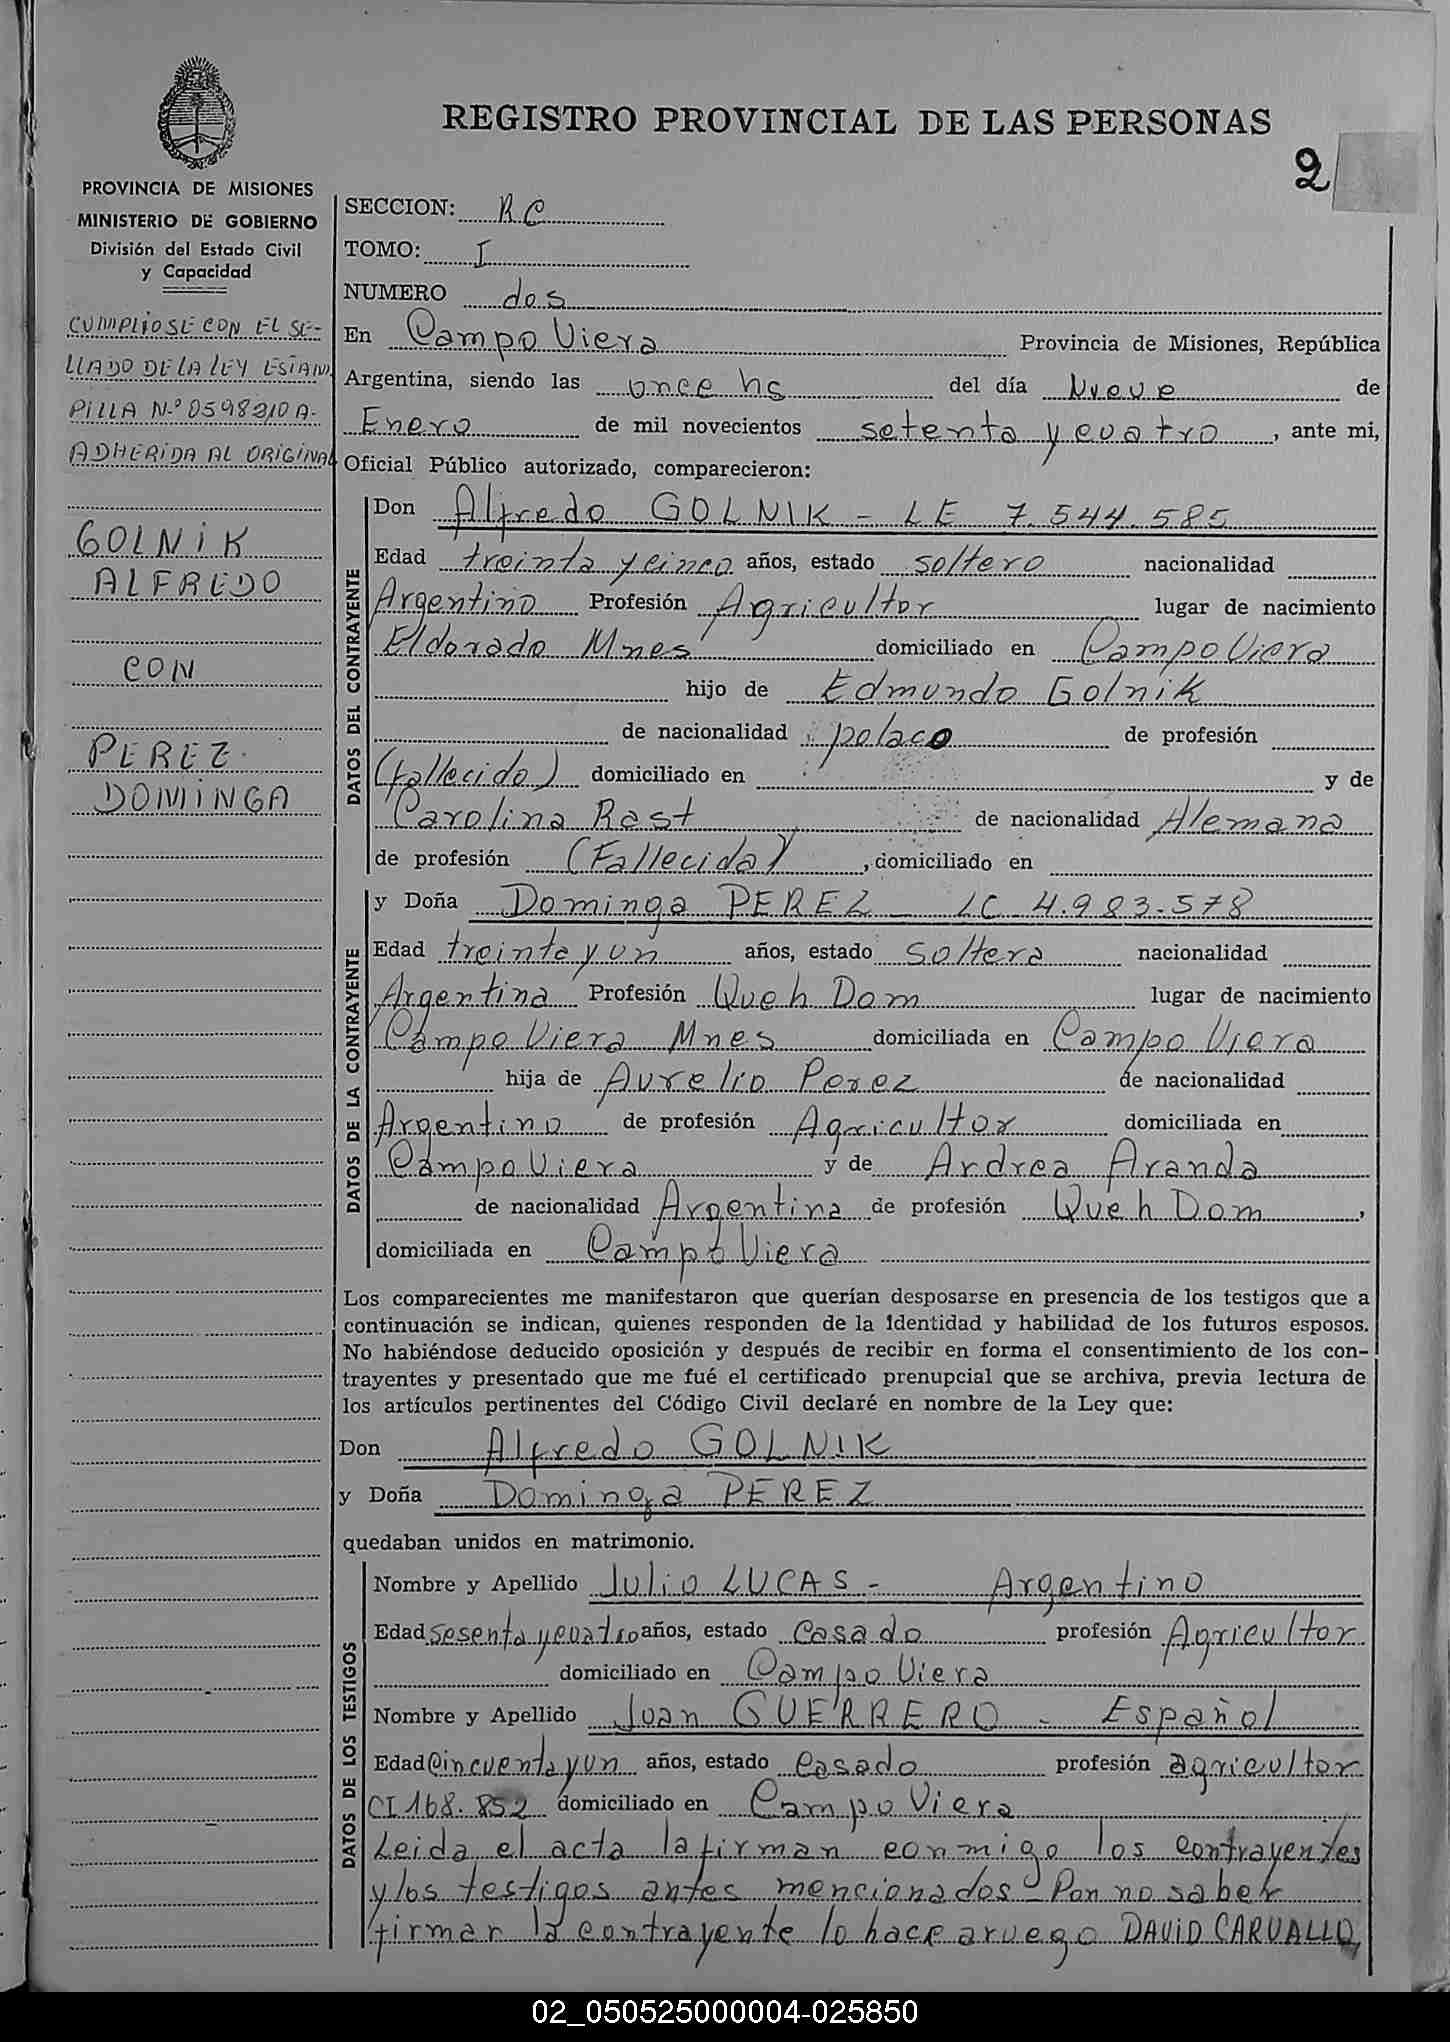 REGISTRO PROVINCIAL DE LAS PERSONAS
2
PROVINCIA DE MISIONES
MINISTERIO DE GOBIERNO
División del Estado Civil
y Capacidad
CUMPLIOSE CON EL SE-
LLADO DE LA LEY ESTAM
PILLA N.º 0598210 A-
ADHERIDA AL ORIGINAL
GOLNIK
ALFREDO
CON
PEREZ
DOMINGA
SECCION: RC
TOMO: I
NUMERO dos
En Campo Viera Provincia de Misiones, República
Argentina, siendo las once hs del día Nueve de
Enero de mil novecientos setenta y cuatro, ante mi,
Oficial Público autorizado, comparecieron:
DATOS DEL CONTRAYENTE
Don Alfredo GOLNIK - LE 7.544.585
Edad treinta y cinco años, estado soltero nacionalidad
Argentino Profesión Agricultor lugar de nacimiento
Eldorado Mnes domiciliado en Campo Viera
hijo de Edmundo Golnik
de nacionalidad polaco de profesión
(Fallecido) domiciliado en y de
Carolina Rast de nacionalidad Alemana
de profesión (Fallecida), domiciliado en
DATOS DE LA CONTRAYENTE
y Doña Dominga PEREZ LC 4.983.578
Edad treinta y un años, estado soltera nacionalidad
Argentina Profesión Queh Dom lugar de nacimiento
Campo Viera Mnes domiciliada en Campo Viera
hija de Aurelio Perez de nacionalidad
Argentino de profesión Agricultor domiciliada en
Campo Viera y de Andrea Aranda
de nacionalidad Argentina de profesión Queh Dom,
domiciliada en Campo Viera
Los comparecientes me manifestaron que querían desposarse en presencia de los testigos que a
continuación se indican, quienes responden de la identidad y habilidad de los futuros esposos.
No habiéndose deducido oposición y después de recibir en forma el consentimiento de los con-
trayentes y presentado que me fué el certificado prenupcial que se archiva, previa lectura de
los artículos pertinentes del Código Civil declaré en nombre de la Ley que:
Don Alfredo GOLNIK
y Doña Dominga PEREZ
quedaban unidos en matrimonio.
DATOS DE LOS TESTIGOS
Nombre y Apellido Julio LUCAS - Argentino
Edad sesenta y cuatro años, estado casado profesión Agricultor
domiciliado en Campo Viera
Nombre y Apellido Juan GUERRERO - Español
Edad Cincuenta y un años, estado Casado profesión agricultor
CI 168.852 domiciliado en Campo Viera
Leida el acta la firman conmigo los contrayentes
y los testigos antes mencionados - Por no saber
firmar la contrayente lo hace a ruego DAVID CARVALLO,
02_050525000004-025850